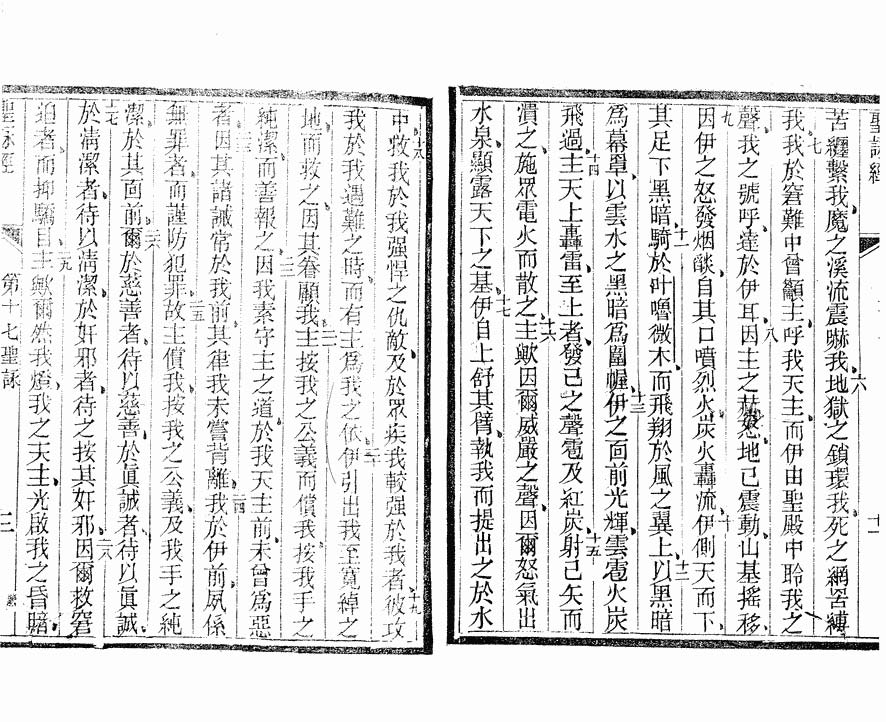 聖詠經
苦纏繫我魔之溪流震嚇我六地獄之鎖環我死之網罟縛
我七我於窘難中曾籲主呼我天主而伊由聖殿中聆我之
聲我之號呼達於伊耳八因主之赫怒地己震動山基搖移
九因伊之怒發烟燄自其口噴烈火炭火轟流十伊側天而下
其足下黑暗十一騎於叶嚕微木而飛翔於風之翼上十二以黑暗
爲幕罩以雲水之黑暗爲圍幄十三伊之面前光輝雲雹火炭
飛過十四主天上轟雷至上者發己之聲雹及紅炭十五射己矢而
潰之施眾電火而散之十六主歟因爾威嚴之聲因爾怒氣出
水泉顯露天下之基十七伊自上舒其臂執我而提出之於水
中十八救我於我强悍之仇敵及於眾疾我較强於我者十九彼攻
我於我遇難之時而有主爲我之依二十伊引出我至寬綽之
地而救之因其眷顧我二一主按我之公義而償我按我手之
純潔而善報之二二因我素守主之道於我天主前未曾爲惡
者二三因其諸誡常於我前其律我未嘗背離二四我於伊前夙係
無罪者而謹防犯罪二五故主償我按我之公義及我手之純
潔於其面前二六爾於慈善者待以慈善於眞誠者待以眞誠
二七於清潔者待以清潔於奸邪者待之按其奸邪二八因爾救窘
迫者而抑驕目二九主歟爾然我燈我之天主光啟我之昏暗
聖詠經
第十七聖詠